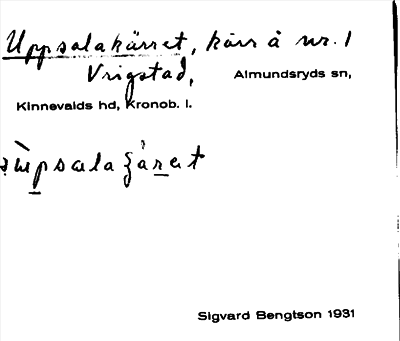 Uppsalakärret, kärr å nr. 1
Vrigstad, Almundsryds sn,
Kinnevalds hd, Kronob. l.
Sigvard Bengtson 1931